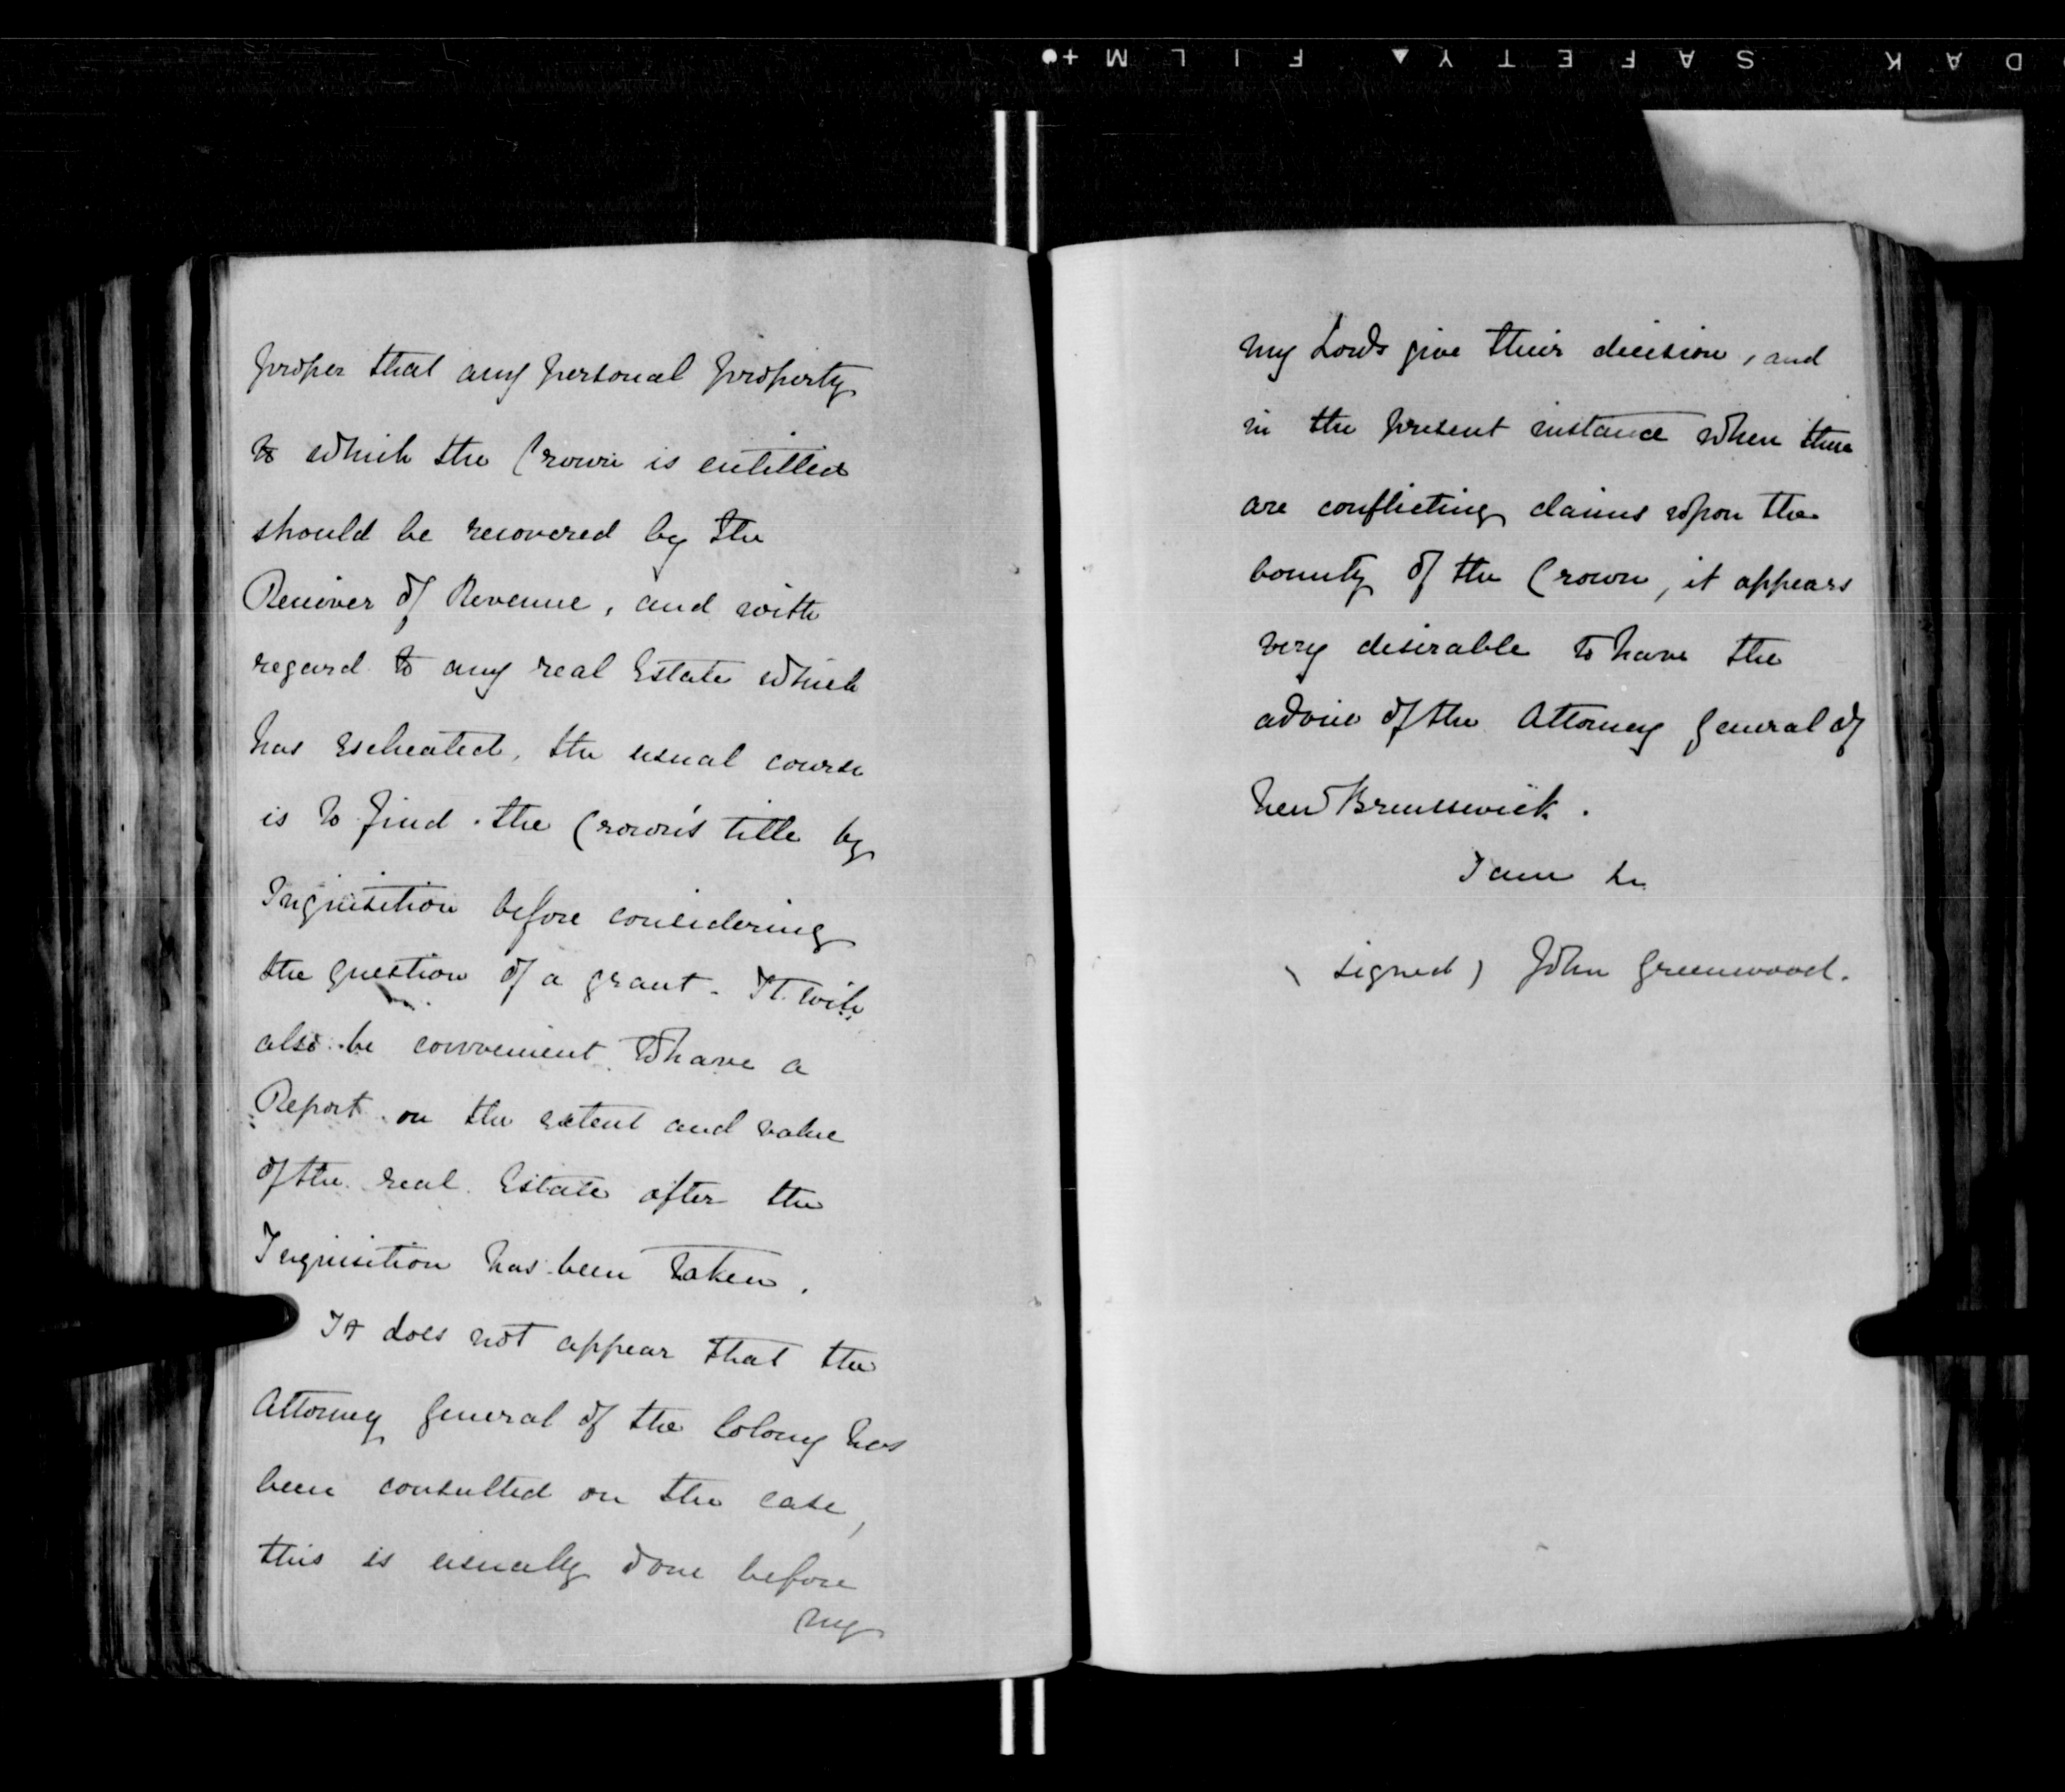 DAK SAFETY FILM
proper that any personal property
to which the Crown is entitled
should be recovered by the
Receiver of Revenue, and with
regard to any real Estate which
has escheated, the usual course
is to find the Crown's title by
Inquisition before considering
the question of a grant. It will
also be convenient to have a
Report on the extent and value
of the real Estate after the
Inquisition has been taken.
It does not appear that the
Attorney General of the Colony has
been consulted on the case,
this is usually done before
my
my Lords give their decision, and
in the present instance when there
are conflicting claims upon the
bounty of the Crown, it appears
very desirable to have the
advice of the Attorney General of
New Brunswick.
I am &c
(signed) John Greenwood.